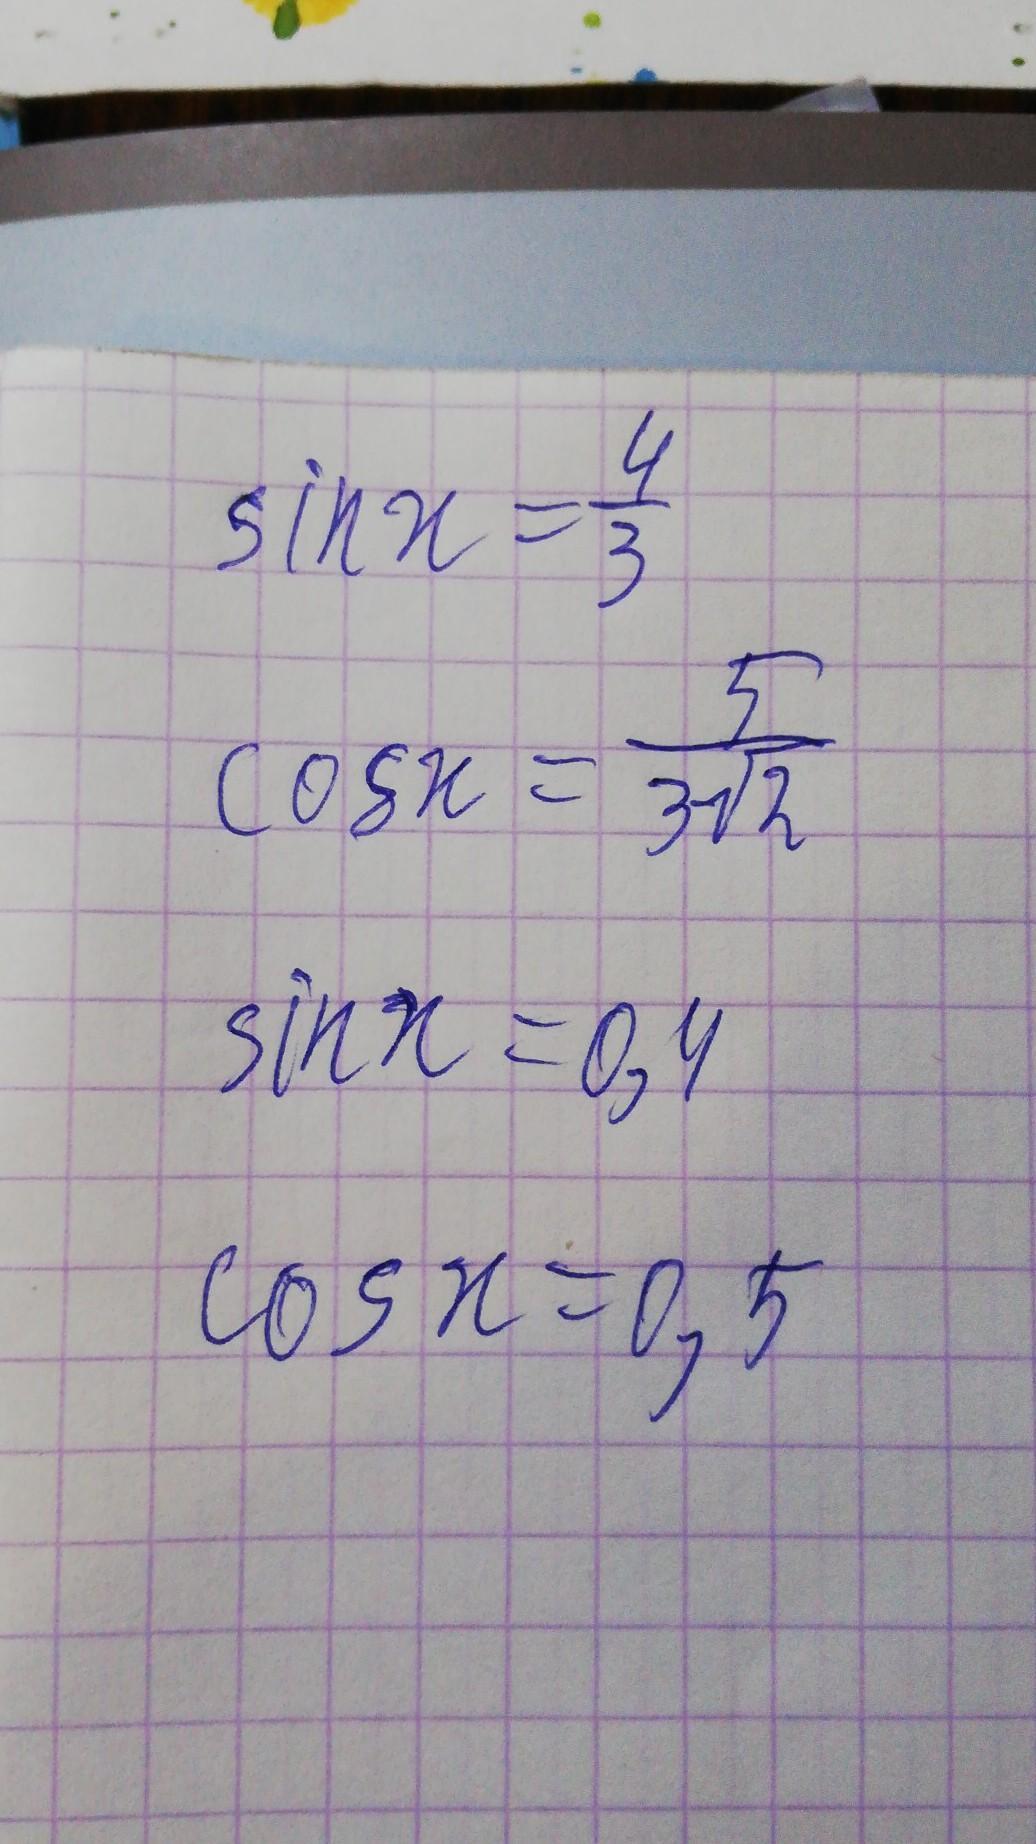 sin x = 4/3
cos x = 5/(3√2)
sin x = 0,4
cos x = 0,5